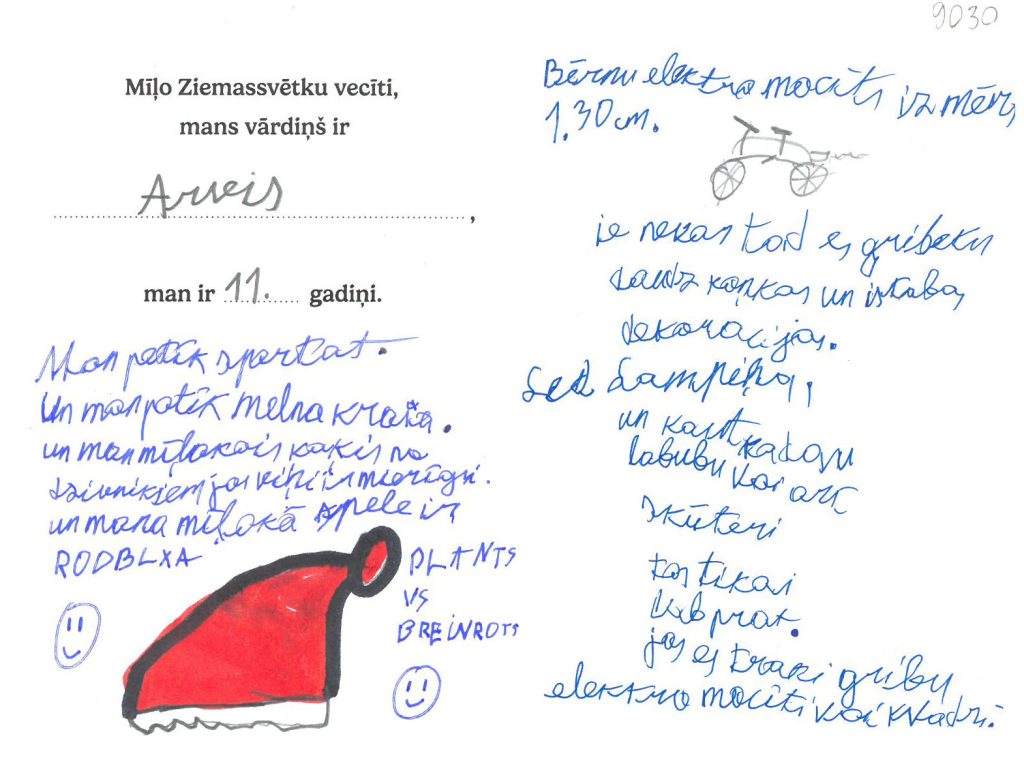 9030
Mīļo Ziemassvētku vecīti,
mans vārdiņš ir
Arveis,
man ir 11. gadiņi.
Man patīk sportat.
Un man patīk melna kraša.
un man mīļakais kaķis no
dzivnikiem jo viņi ir mierīgi.
un mana mīļokā spele ir
RODBLXA
PLANTS
VS
BREINROTS
Bērnu elektro mocīti izmērs
1.30 cm.
ie nekas tad es gribeku
daudz koņkas un istabas
dekoracijas.
Led Lampiņa,
un kaut kadavu
labubu vai arī
skūteri
tas tikai
labprat.
jo es traki gribu
elektro mocīti vai kvadri.